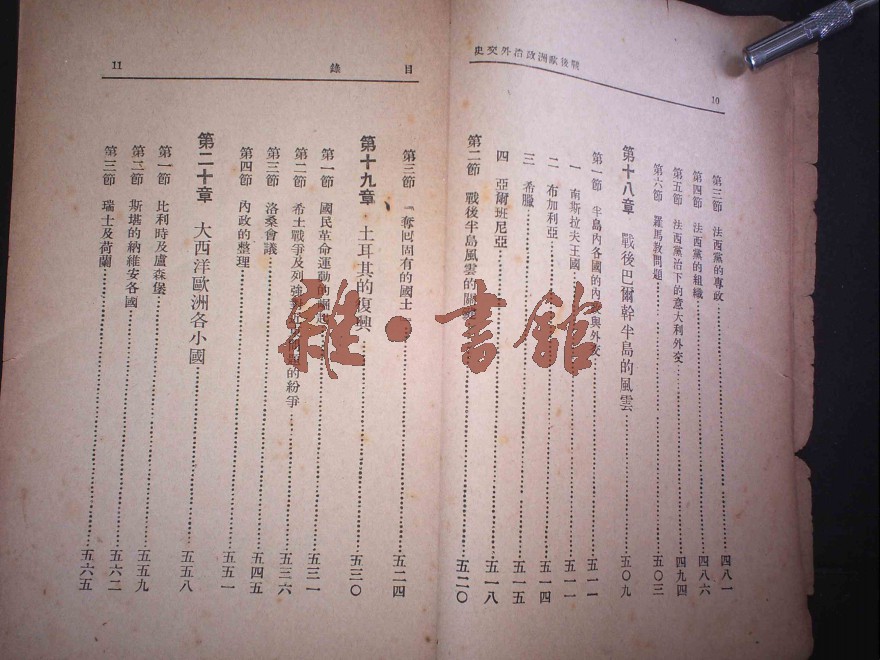 戰後歐洲政治外交史
10
第三節 法西黨的專政 四八一
第四節 法西黨的組織 四八六
第五節 法西黨治下的意大利外交 四九四
第六節 羅馬教問題 五〇三
第十八章 戰後巴爾幹半島的風雲 五〇九
第一節 半島內各國的內政與外交 五一一
一 南斯拉夫王國 五一一
二 布加利亞 五一四
三 希臘 五一五
四 亞爾班尼亞 五一八
第二節 戰後半島風雲的關 五二〇
目錄
11
第三節 「奪囘固有的國土 五二四
第十九章 土耳其的復興 五三〇
第一節 國民革命運動的 五三一
第二節 希土戰爭及列強對 的紛爭 五三六
第三節 洛桑會議 五四五
第四節 內政的整理 五五一
第二十章 大西洋歐洲各小國 五五八
第一節 比利時及盧森堡 五五九
第二節 斯堪的納維安各國 五六二
第三節 瑞士及荷蘭 五六五
雜·書館